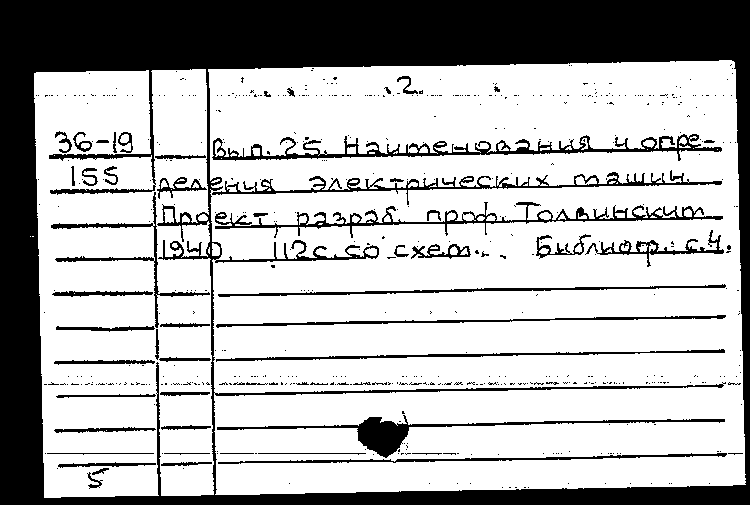 .2.
36-19 Вып. 25. Наименования и опре-
155 деления электрических машин.
Проект, разраб. проф. Толвинским
1940. 112с. со схем. Библиогр.: с.4.
5